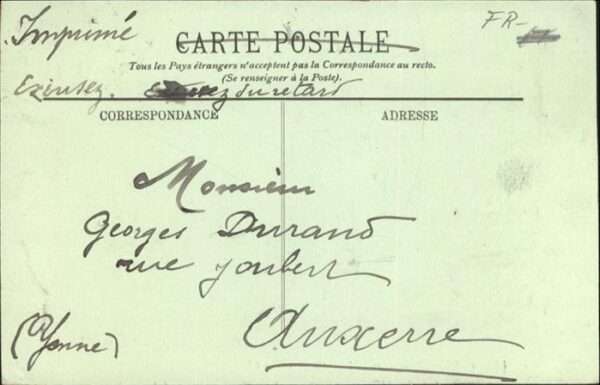 Imprimé
FR-
CARTE POSTALE
Tous les Pays étrangers n'acceptent pas la Correspondance au recto.
(Se renseigner à la Poste).
Exiusez. du retard
CORRESPONDANCE
ADRESSE
Monsieur
Georges Durand
rue Joubert
Auxerre
(Yonne)